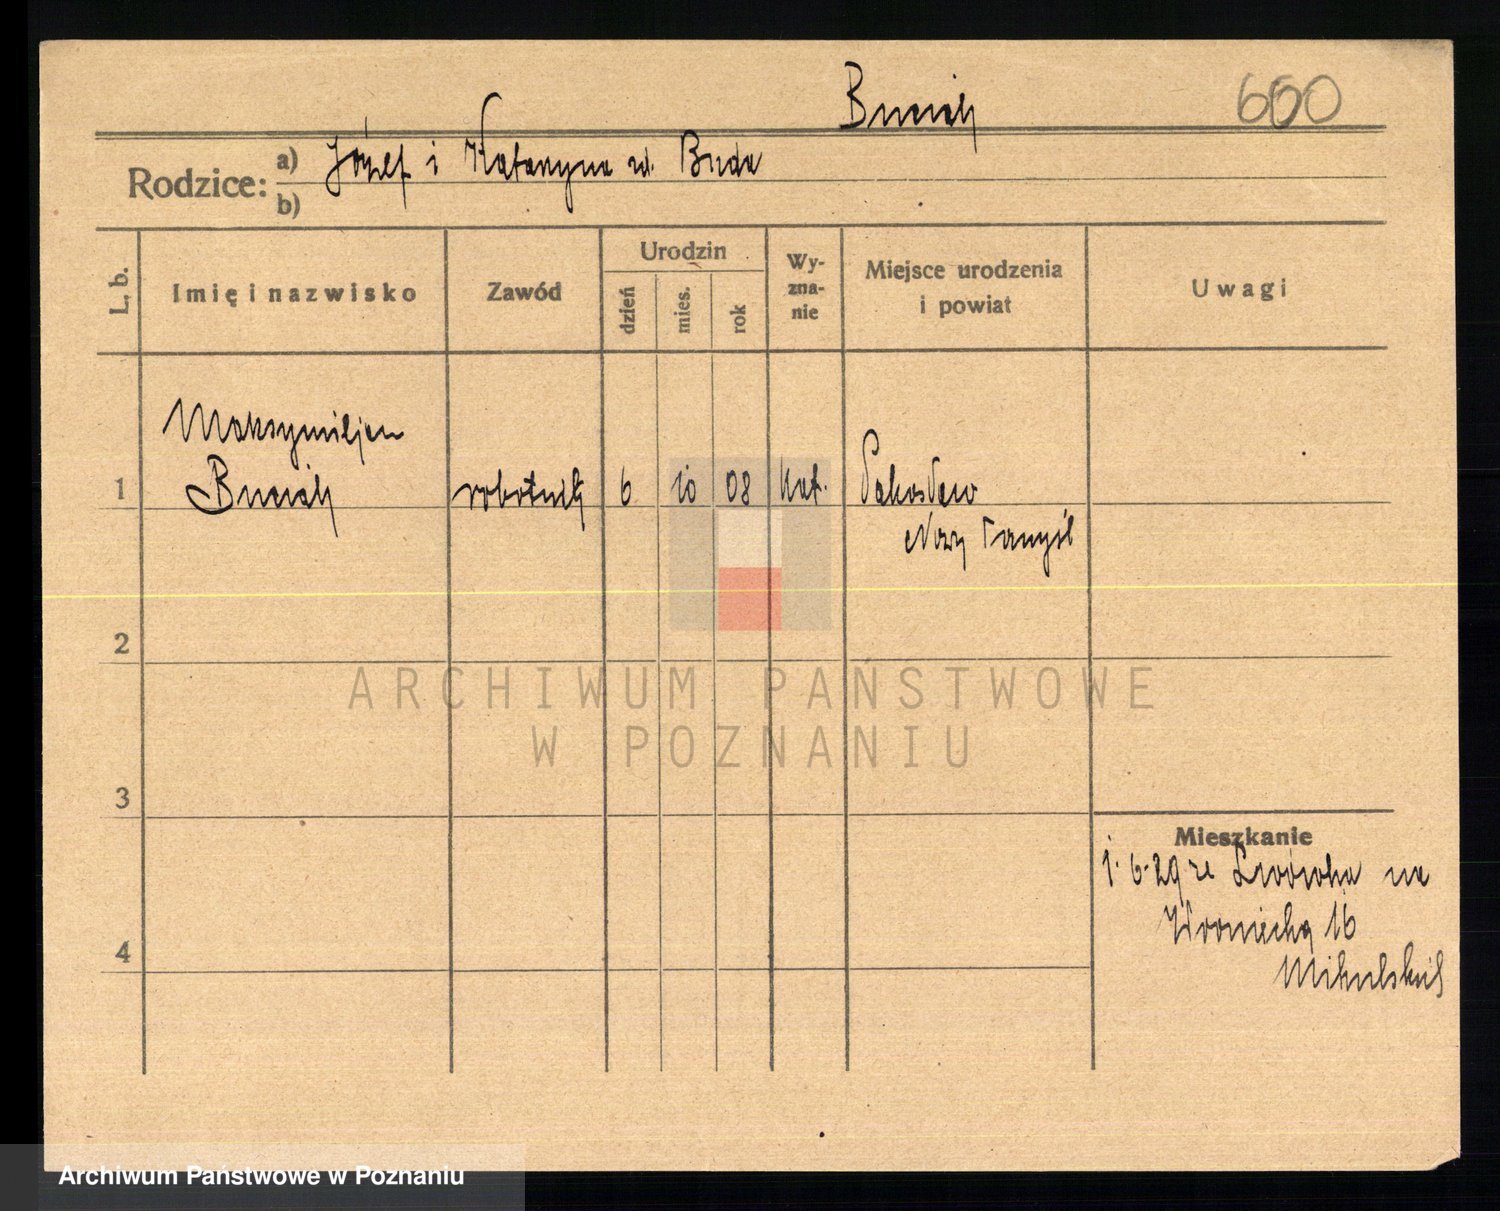 Buciek
600
Rodzice: a) Józef i Katarzyna zd. Buda
b)
L. b.
Imię i nazwisko
Zawód
Urodzin
dzień
mies.
rok
Wy-
zna-
nie
Miejsce urodzenia
i powiat
Uwagi
Maksymiljan
1 Buciek robotnik 6 10 08 kat. Pakosław
Nowy Tomyśl
2
ARCHIWUM PAŃSTWOWE
W POZNANIU
3
Mieszkanie
1.6.29 ze Lwówka na
16
4
Archiwum Państwowe w Poznaniu